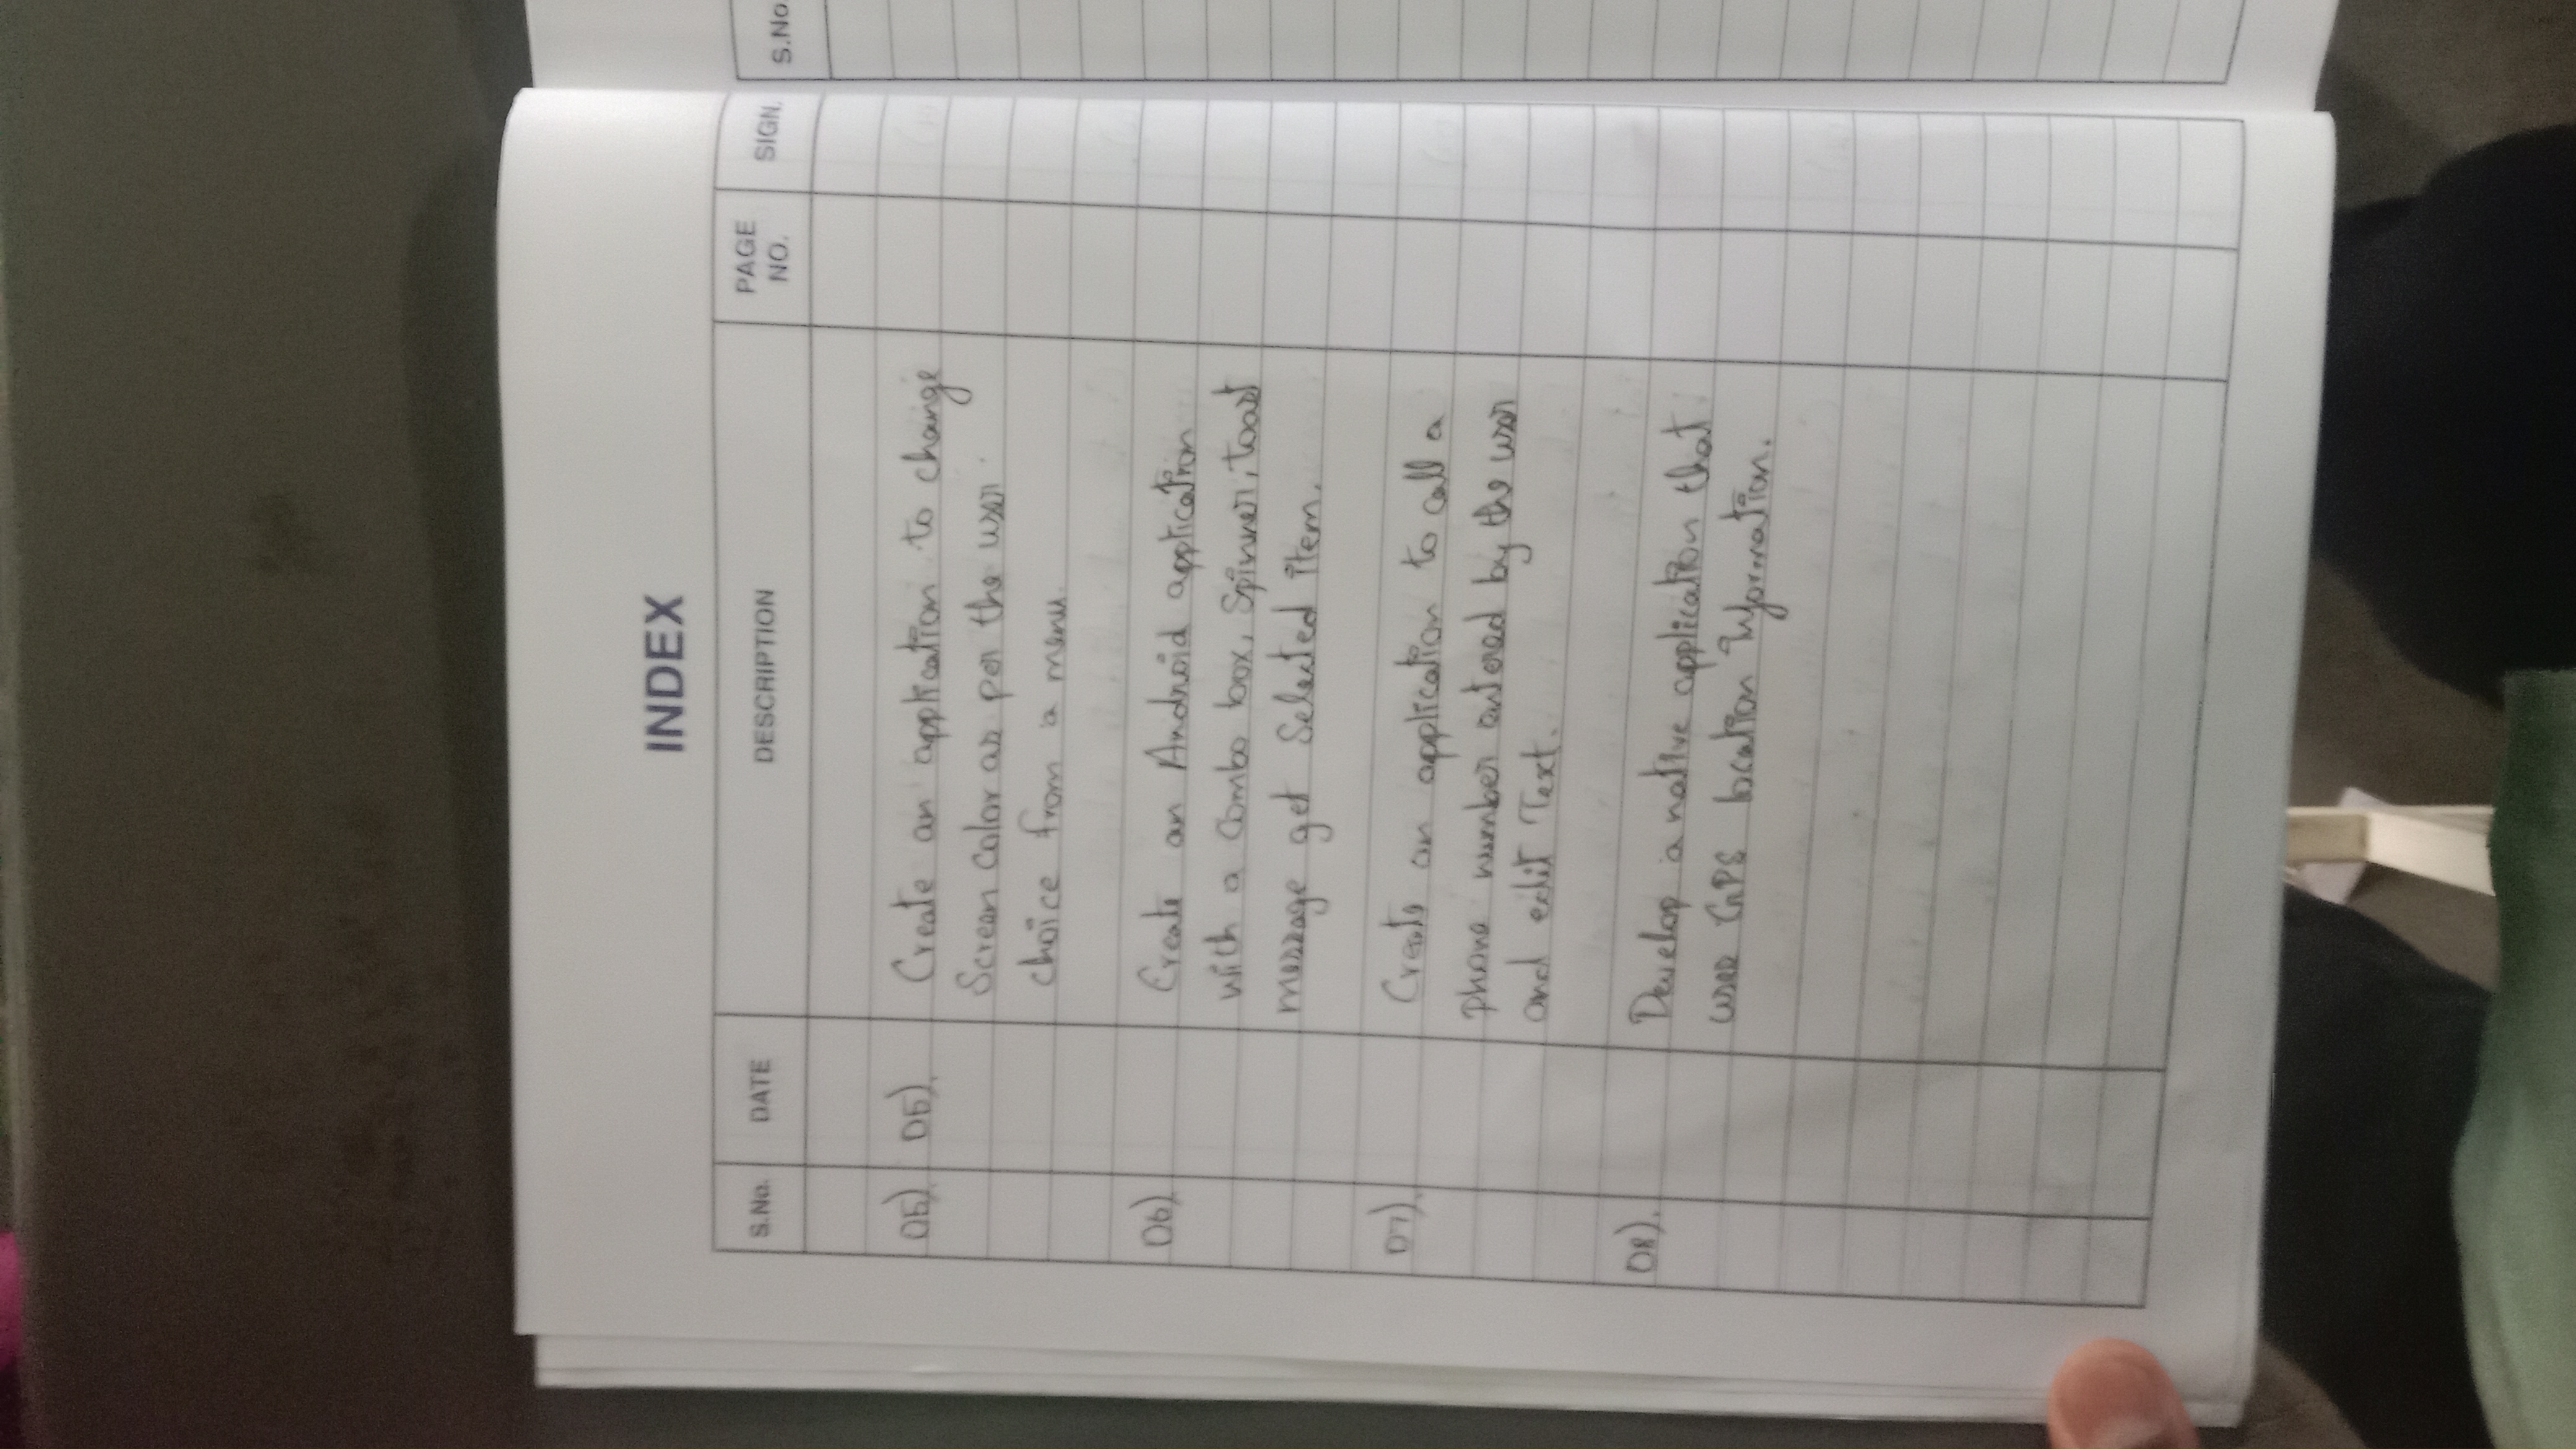 INDEX
S.No. DATE DESCRIPTION PAGE NO. SIGN. S.No
05). 05). Create an application to change
Screen color as per the user
choice from a menu.
06). Create an Android application
with a Combo box, Spinner, toast
message get Selected item.
07). Create an application to call a
phone number entered by the user
and edit Text.
08). Develop a native application that
uses GPS location Information.